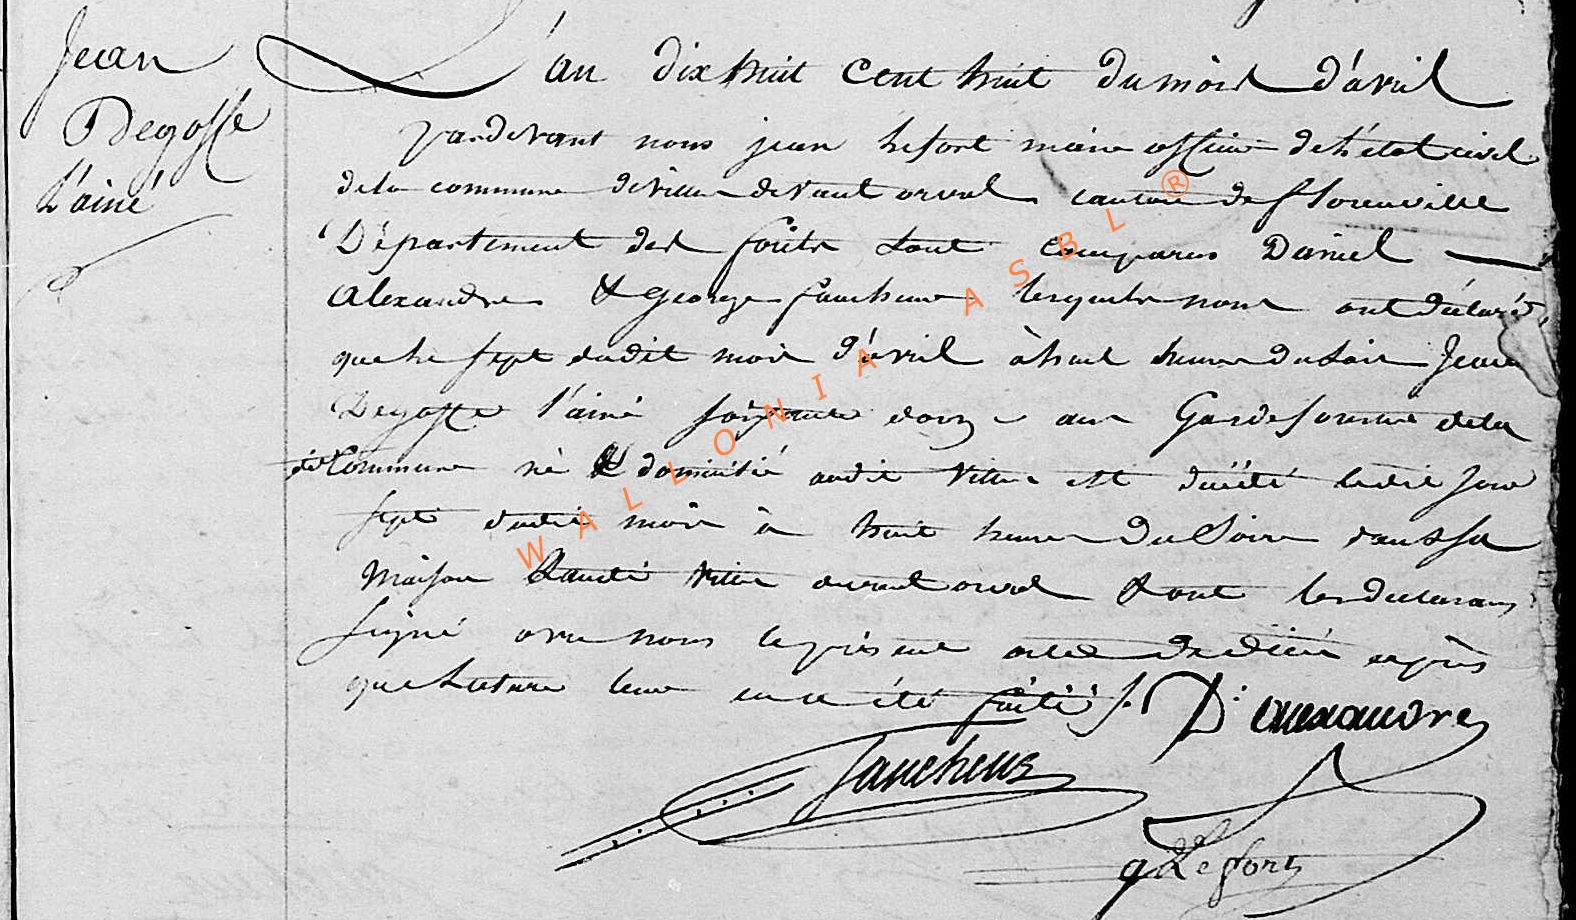 Jean
Degosse
L'ainé
L'an dix huit cent huit du mois d'avril
pardevant nous jean Lefort maire officier de L'état civil
dela commune de villers devant orval canton de florenville
Département des forêts sont comparus Daniel
Alexandre & George faucheux lesquels nous ont déclaré
que le sept dudit mois d'avril à huit heures du soir Jean
Degosse l'ainé soixante douze ans Garde forestier dela
Commune né & domicilié audit villers est décédé ledit jour
sept dudit mois à huit heures du Soir dans sa
Maison audit villers devant orval & ont les déclarans
signé avec nous le présent acte de décès après
que Lecture leur en a été faite ./.
D: alexandre
faucheux
J Lefort
WALLONIA ASBL ®